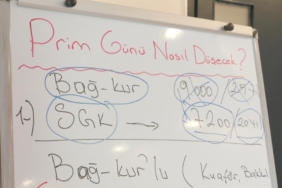 Prim Günü Nasıl Düşecek?
Bağ-kur 9000
1-) SGK → 7200
Bağ-kur'lu ( Kuaför,